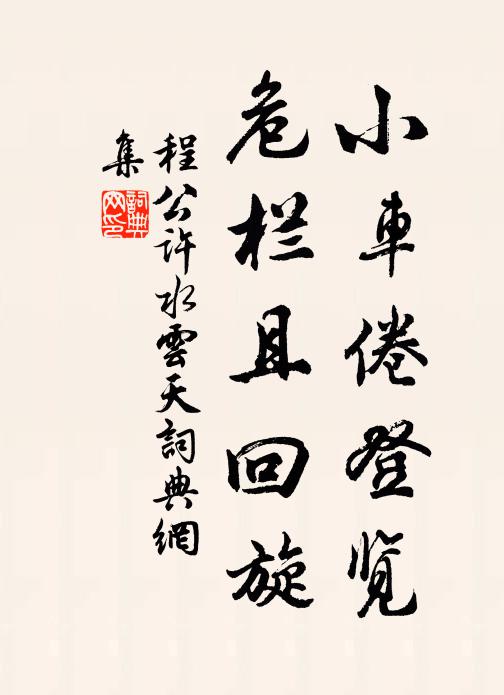 小車倦登览
危栏且回旋
程公许水雲天詞典網
集
詞典网印